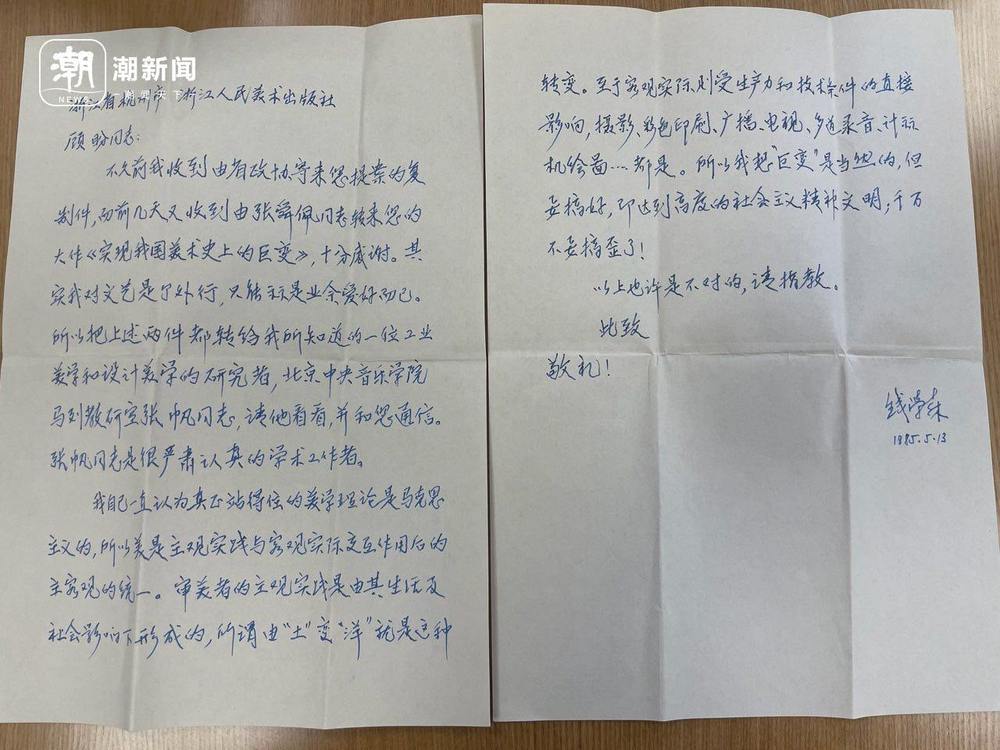 潮
NEWS
潮新闻
一潮见天下
浙江省杭州市 浙江人民美术出版社
顾盼同志:
不久前我收到由省政协寄来您提案的复
制件,而前几天又收到由张舜佩同志转来您的
大作《实现我国美术史上的巨变》,十分感谢。其
实我对文艺是个外行,只能算是业余爱好而已。
所以把上述两件都转给我所知道的一位工业
美学和设计美学的研究者,北京中央音乐学院
马列教研室张帆同志,请他看看,并和您通信。
张帆同志是很严肃认真的学术工作者。
我自己一直认为真正站得住的美学理论是马克思
主义的,所以美是主观实践与客观实际交互作用后的
主客观的统一。审美者的主观实践是由其生活及
社会影响下形成的,所谓由“土”变“洋”就是这种
转变。至于客观实际则受生产力和技术条件的直接
影响,摄影、彩色印刷、广播、电视、多道录音、计标
机绘画…都是。所以我想“巨变”是当然的,但
要搞好,即达到高度的社会主义精神文明,千万
不要搞歪了!
以上也许是不对的,请指教。
此致
敬礼!
钱学森
1985.5.13